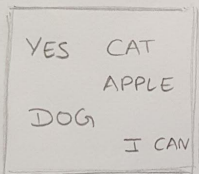 YES CAT
APPLE
DOG
I CAN